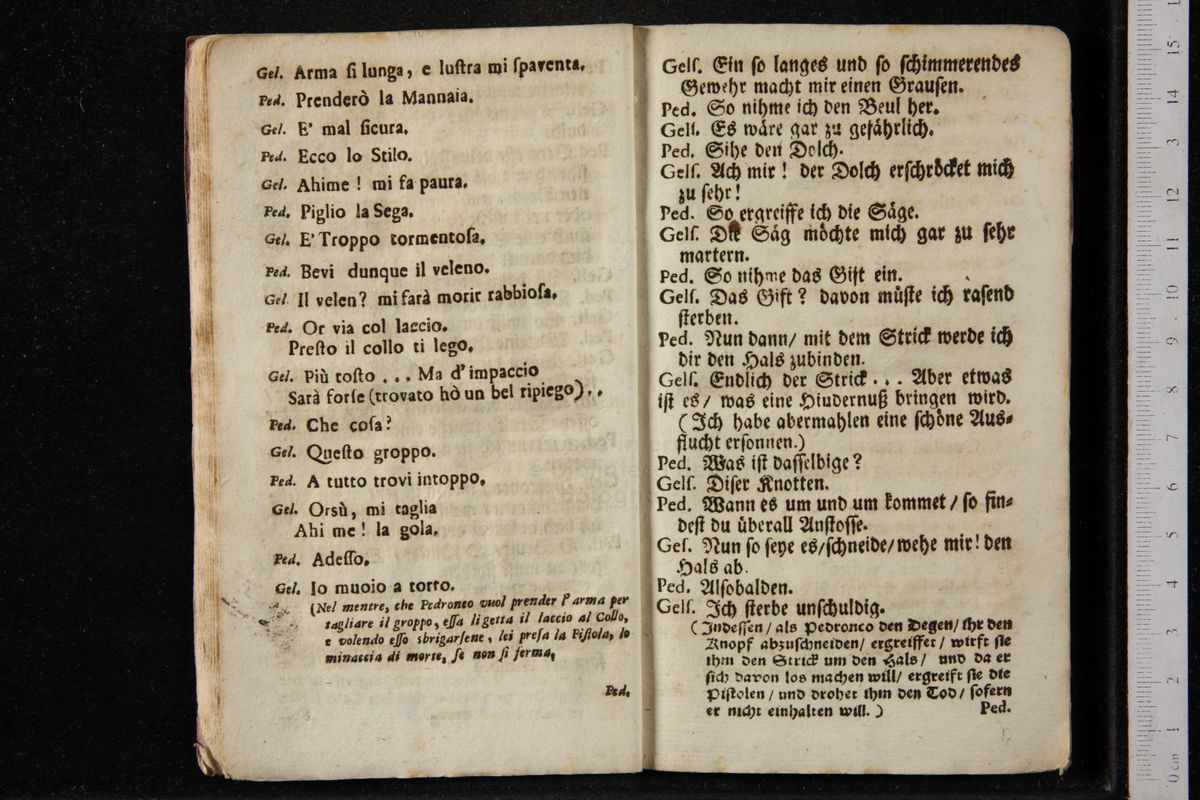 Gel. Arma ſi lunga, e luſtra mi ſpaventa.
Ped. Prenderò la Mannaia.
Gel. E' mal ſicura.
Ped. Ecco lo Stilo.
Gel. Ahime ! mi fa paura.
Ped. Piglio la Sega.
Gel. E' Troppo tormentoſa.
Ped. Bevi dunque il veleno.
Gel. Il velen? mi farà morir rabbioſa.
Ped. Or via col laccio.
Preſto il collo ti lego.
Gel. Più toſto . . . Ma d' impaccio
Sarà forſe (trovato hò un bel ripiego) . .
Ped. Che coſa?
Gel. Queſto groppo.
Ped. A tutto trovi intoppo.
Gel. Orsù, mi taglia
Ahi me ! la gola.
Ped. Adeſſo.
Gel. Io muoio a torto.
(Nel mentre, che Pedronco vuol prender l' arma per
tagliare il groppo, eſſa li getta il laccio al Collo,
e volendo eſſo sbrigarſene, lei preſa la Piſtola, lo
minaccia di morte, ſe non ſi ferma.
Ped.
Gelſ. Ein ſo langes und ſo ſchimmerendes
Gewehr macht mir einen Grauſen.
Ped. So nihme ich den Beul her.
Gelſ. Es wäre gar zu gefährlich.
Ped. Sihe den Dolch.
Gelſ. Ach mir ! der Dolch erſchröcket mich
zu ſehr!
Ped. So ergreiffe ich die Säge.
Gelſ. Die Säg möchte mich gar zu ſehr
martern.
Ped. So nihme das Gift ein.
Gelſ. Das Gift ? davon müſte ich raſend
ſterben.
Ped. Nun dann/ mit dem Strick werde ich
dir den Hals zubinden.
Gelſ. Endlich der Strick . . . Aber etwas
iſt es/ was eine Hiudernuß bringen wird.
( Ich habe abermahlen eine ſchöne Aus⸗
flucht erſonnen.)
Ped. Was iſt daſſelbige ?
Gelſ. Diſer Knotten.
Ped. Wann es um und um kommet / ſo fin⸗
deſt du überall Anſtoſſe.
Geſ. Nun ſo ſeye es/ſchneide/wehe mir! den
Hals ab.
Ped. Alſobalden.
Gelſ. Ich ſterbe unſchuldig.
( Indeſſen / als Pedronco den Degen/ ihr den
Knopf abzuſchneiden/ ergreiffet/ wirft ſie
ihm den Strick um den Hals / und da er
ſich davon los machen will/ ergreift ſie die
Piſtolen / und drohet ihm den Tod / ſofern
er nicht einhalten will. )
Ped.